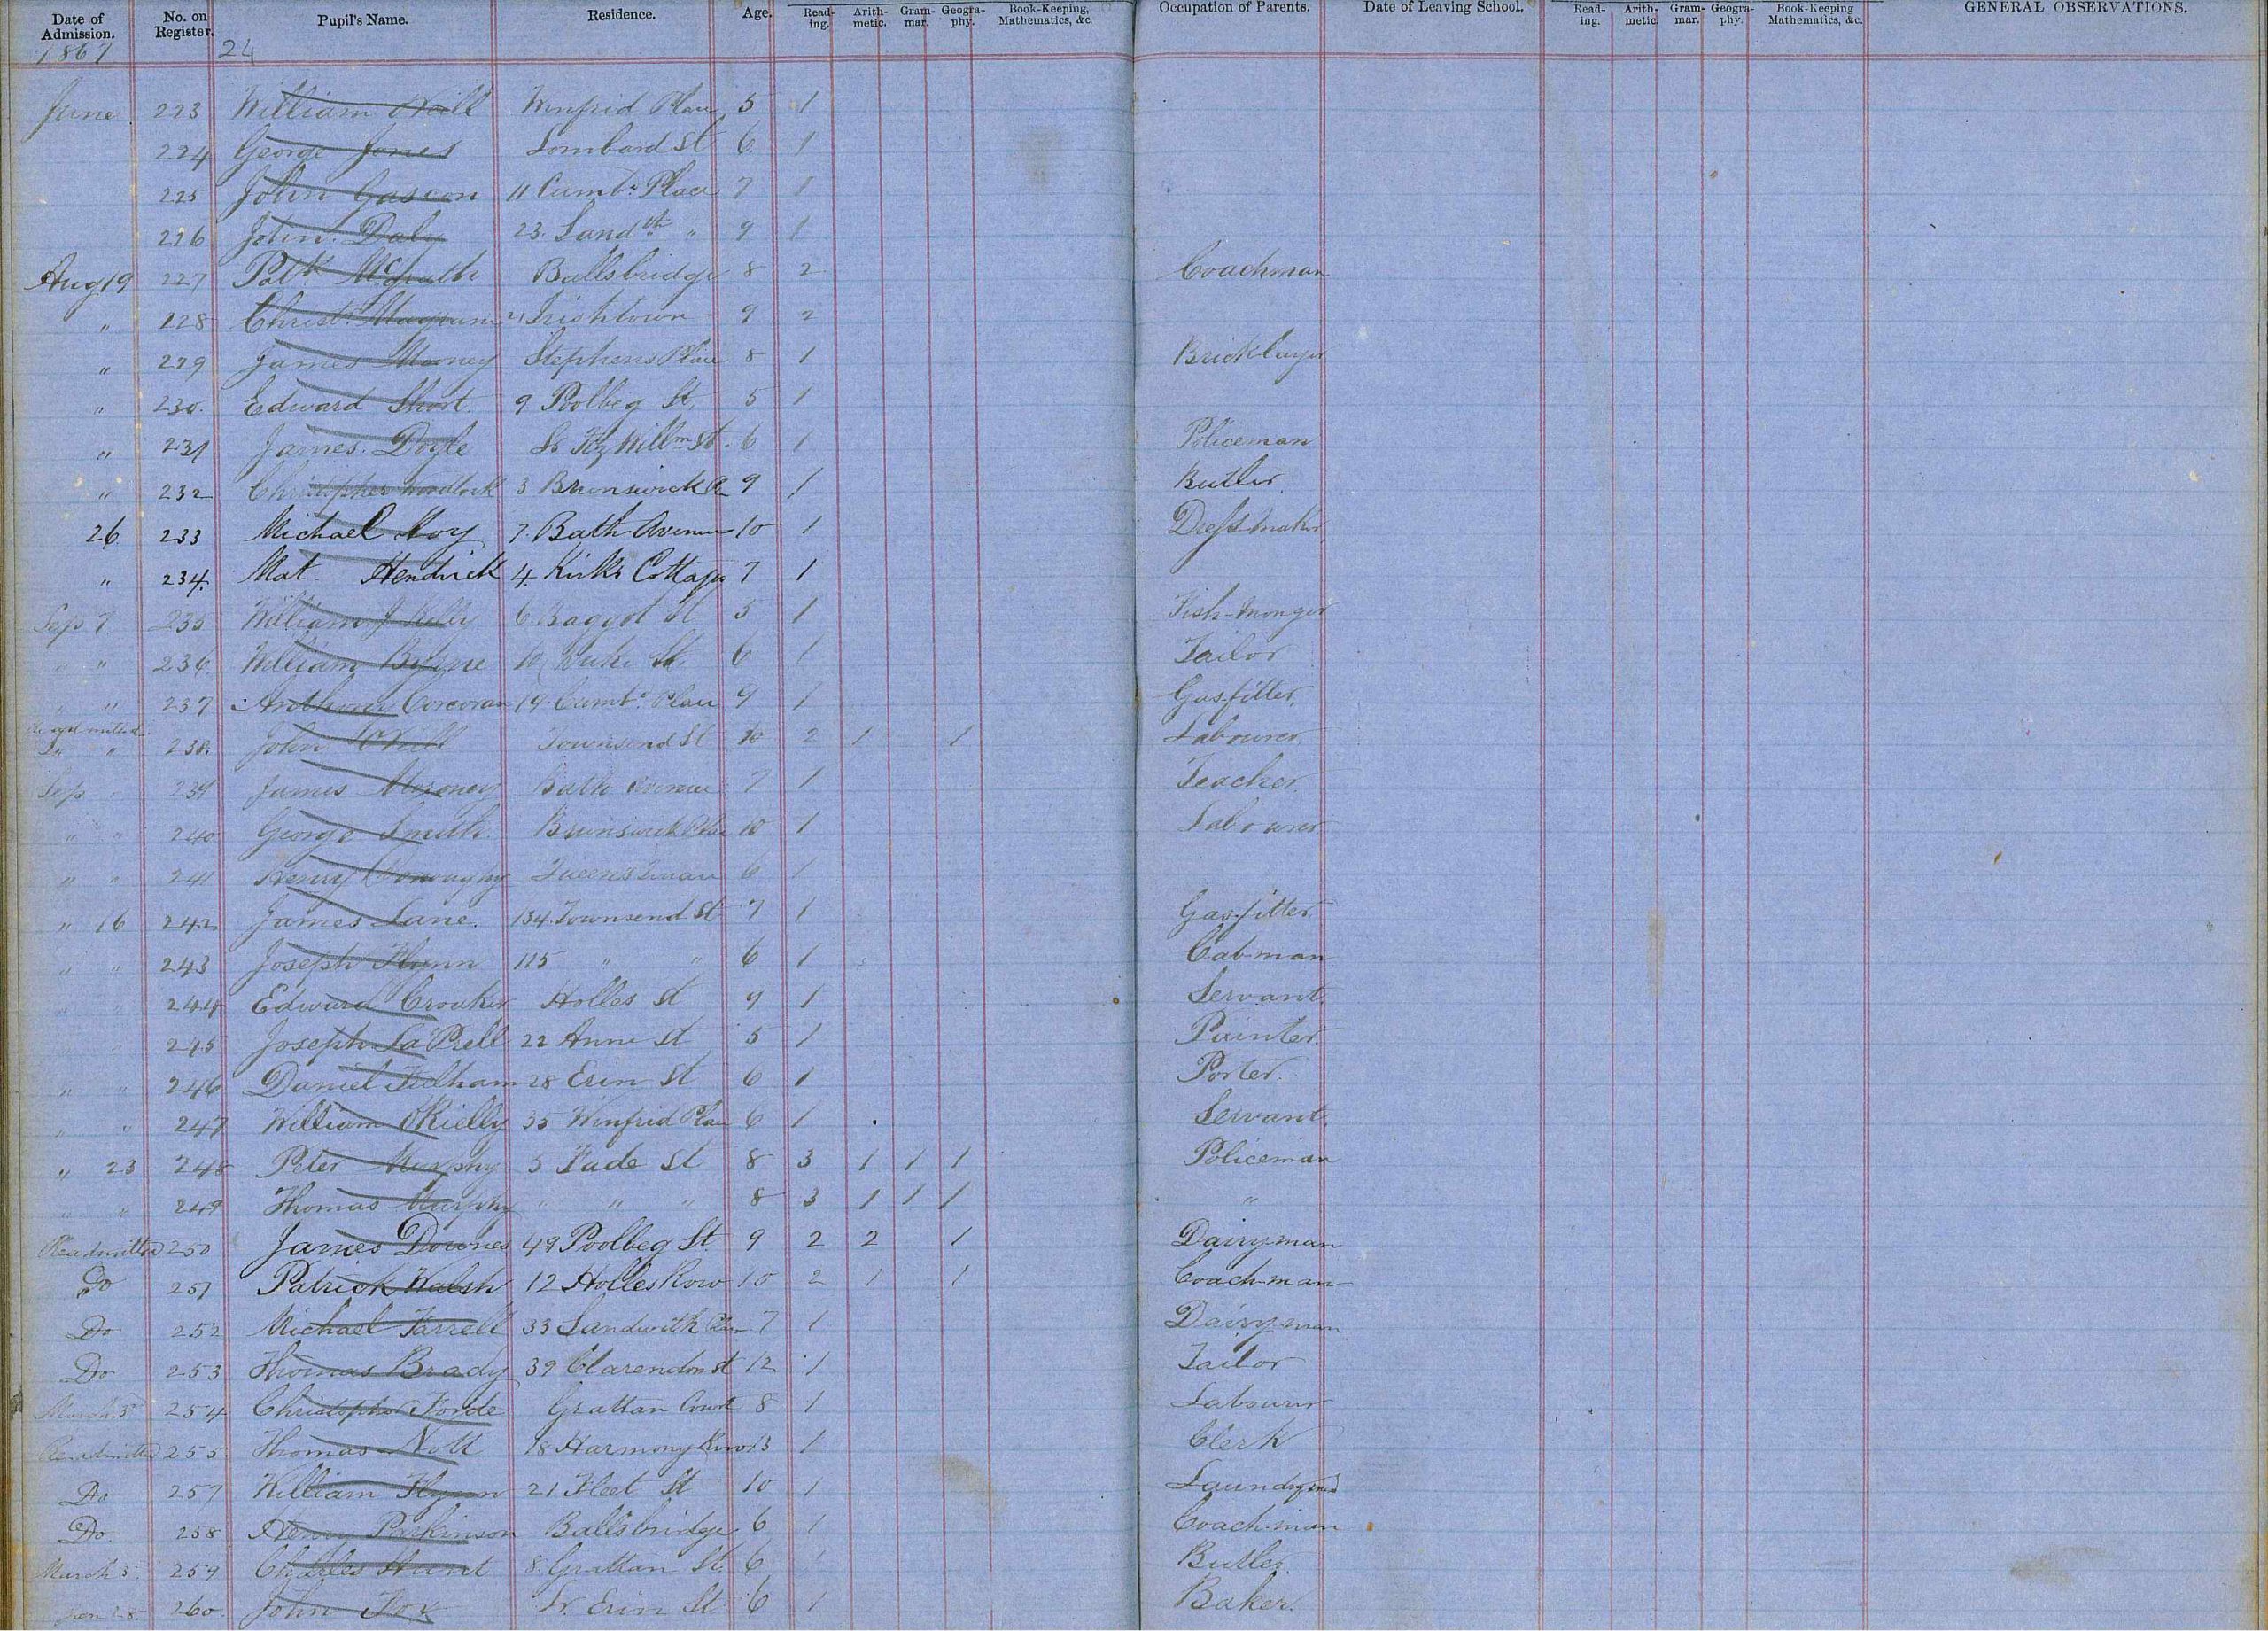 Date of Admission. No. on Register. Pupil's Name. Residence. Age. Read-ing. Arith-metic. Gram-mar. Geogra-phy. Book-Keeping, Mathematics, &c. Occupation of Parents. Date of Leaving School. Read-ing. Arith-metic. Gram-mar. Geogra-phy. Book-Keeping Mathematics, &c. GENERAL OBSERVATIONS.
1867 24
June 223 William Neill Winfrid Place 5 1
224 George Jones Lombard St 6 1
225 John Gascon 11 Cumbd. Place 7 1
226 John. Daly 23. Sandwth " 9 1
Aug 19 227 Patk McGrath Ballsbridge 8 2 Coachman
" 228 Christr. Irishtown 9 2
" 229 James Mooney Stephens Place 8 1 Bricklayer
" 230. Edward Short. 9 Poolbeg St. 5 1
" 231 James. Doyle Lr Fitz Willm St. 6 1 Policeman
" 232 Christopher Woodlock 3 Brunswick Pl 9 1 Butler
26 233 Michael 7. Bath Avenue 10 1 Dress-maker
" 234. Mat. Hendrick 4. Kirks Cottages 7 1
Sep 7 235 William J Kelly 6. Baggot St 5 1 Fish-monger
" " 236. William Byrne 10 Duke St. 6 1 Tailor
" " 237 Anthony Corcoran 19 Cumbd. Place 9 1 Gasfitter,
Re-admitted
" " 238. John O'Neill Townsend St 10 2 1 1 Labourer
Sep " 239 James Moroney Bath Avenue 7 1 Teacher.
" " 240 George Smith. Brunswick Place 10 1 Labourer
" " 241 Henry Queens Square 6 1
" 16 242 James Lane. 134. Townsend St 7 1 Gas-fitter
" " 243 Joseph Flynn 115 " " 6 1 Cab-man
" " 244 Edward Croaker Holles St 9 1 Servant.
" " 245 Joseph La'Prell 22 Anne St 5 1 Painter.
" " 246 Daniel Fulham 28 Erin St 6 1 Porter.
" " 247 William O'Rielly 35 Winfrid Place 6 1 Servant.
" 23 248 Peter Murphy 5 Fade St 8 3 1 1 1 Policeman
" " 249 Thomas Murphy " " " 8 3 1 1 1 "
Readmitted 250 James Downes 49 Poolbeg St. 9 2 2 1 Dairyman
Do 251 Patrick Walsh 12 Holles Row 10 2 1 1 Coach-man
Do 252 Michael Farrell 33 Sandwith Place 7 1 Dairyman
Do 253 Thomas Brady 39 Clarendon St 12 1 Tailor
March 5 254 Christopher Forde Grattan Court 8 1 Labourer
Readmitted 255. Thomas Nott 18 Harmony Row 13 1 Clerk
Do 257 William Flynn 21 Fleet St 10 1 Laundry
Do. 258 Henry Parkinson Ballsbridge 6 1 Coach-man
March 5. 259 Charles Hunt 8. Grattan St. 6 1 Butler.
Jan 28 260. John Fox Lr. Erin St 6 1 Baker.